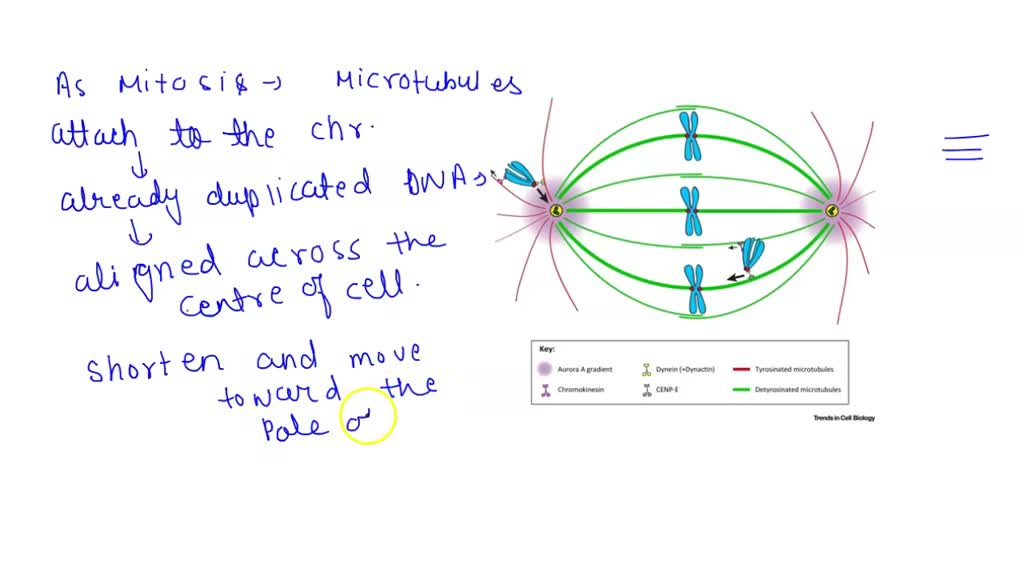 As Mitosis → Microtubules
attach to the chr.
↓
already duplicated DNAs
↓
aligned across the
centre of cell.
shorten and move
toward the
Pole o
Key:
Aurora A gradient
Dynein (+Dynactin)
Tyrosinated microtubules
Chromokinesin
CENP-E
Detyrosinated microtubules
Trends in Cell Biology